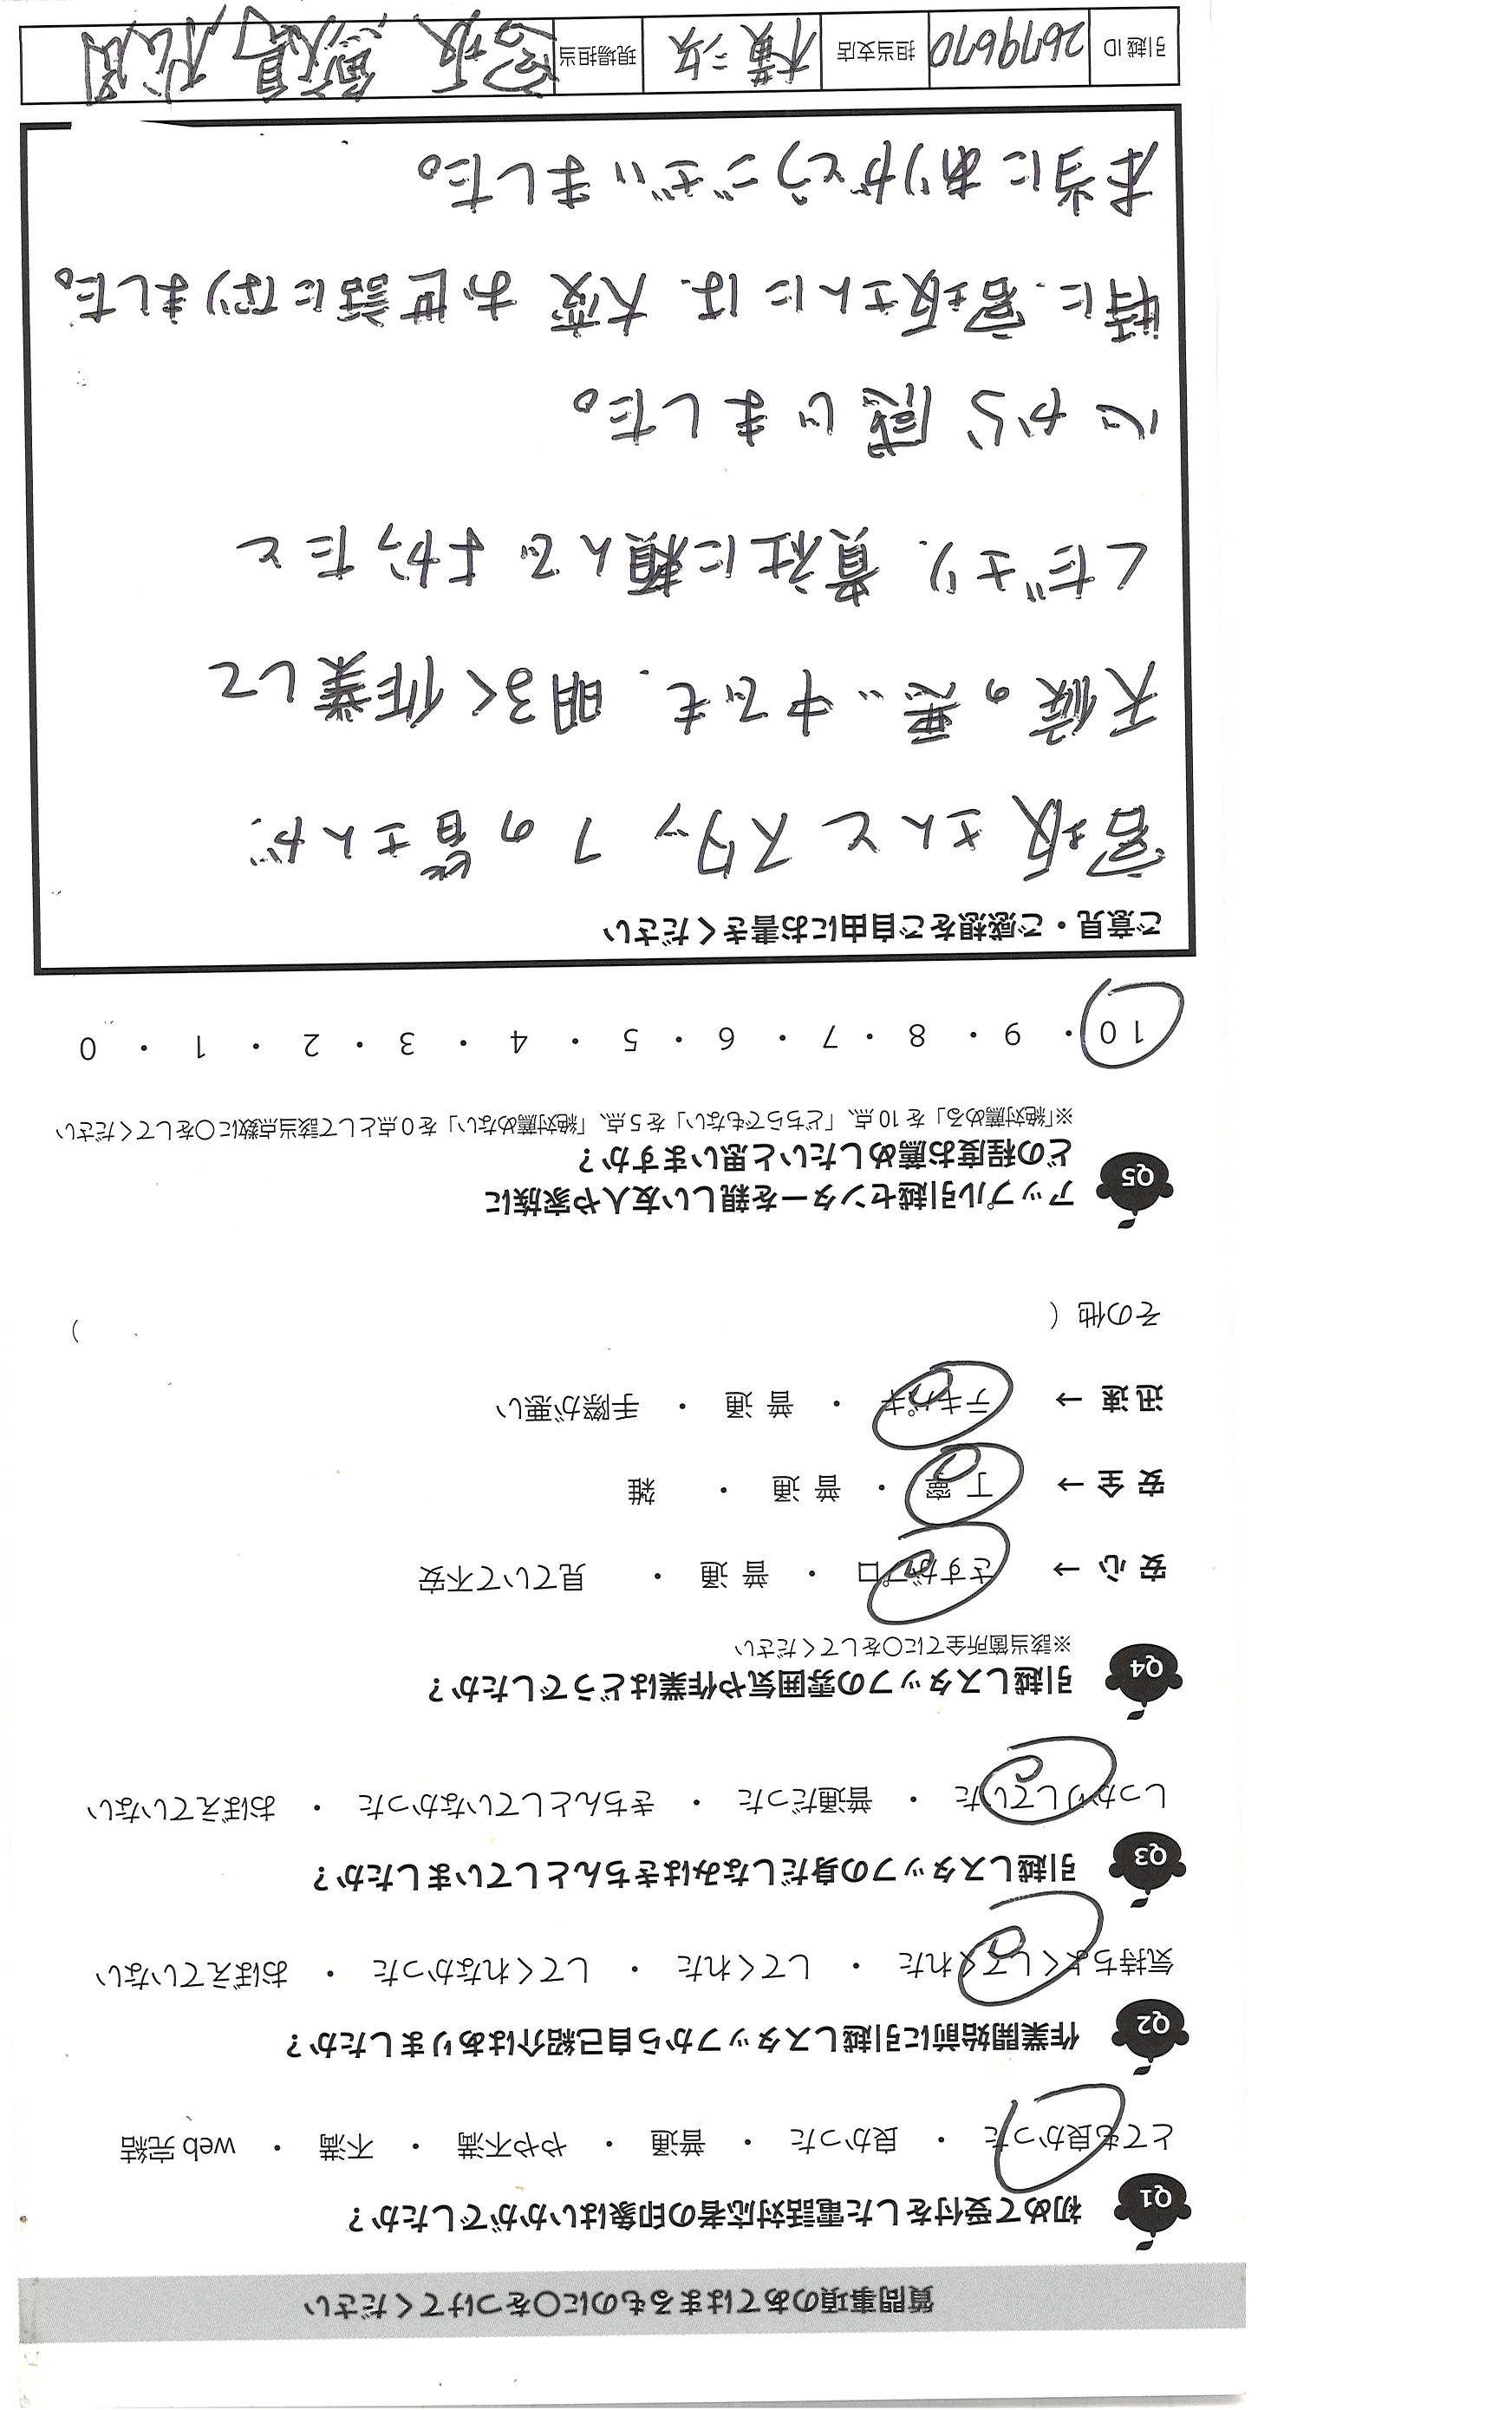 質問事項のあてはまるものに○をつけてください
Q1 初めて受付をした電話対応者の印象はいかがでしたか？
とても良かった ・ 良かった ・ 普通 ・ やや不満 ・ 不満 ・ web 完結
Q2 作業開始前に引越しスタッフから自己紹介はありましたか？
気持ちよくしてくれた ・ してくれた ・ してくれなかった ・ おぼえていない
Q3 引越しスタッフの身だしなみはきちんとしていましたか？
しっかりしていた ・ 普通だった ・ きちんとしていなかった ・ おぼえていない
Q4 引越しスタッフの雰囲気や作業はどうでしたか？
※該当箇所全てに○をしてください
安心 → さすがプロ ・ 普通 ・ 見ていて不安
安全 → 丁寧 ・ 普通 ・ 雑
迅速 → テキパキ ・ 普通 ・ 手際が悪い
その他（ ）
Q5 アップル引越センターを親しい友人や家族に
どの程度お薦めしたいと思いますか？
※「絶対薦める」を 10 点、「どちらでもない」を 5 点、「絶対薦めない」を 0 点として該当点数に○をしてください
10 ・ 9 ・ 8 ・ 7 ・ 6 ・ 5 ・ 4 ・ 3 ・ 2 ・ 1 ・ 0
ご意見・ご感想をご自由にお書きください
宮坂さんとスタッフの皆さんが、
天候の悪い中でも、明るく作業して
くださり、貴社に頼んでよかったと
心から感じました。
特に、宮坂さんには、大変お世話になりました。
本当にありがとうございました。
引越 ID 2679670 担当支店 横浜 現場担当 宮坂、飯島、松岡